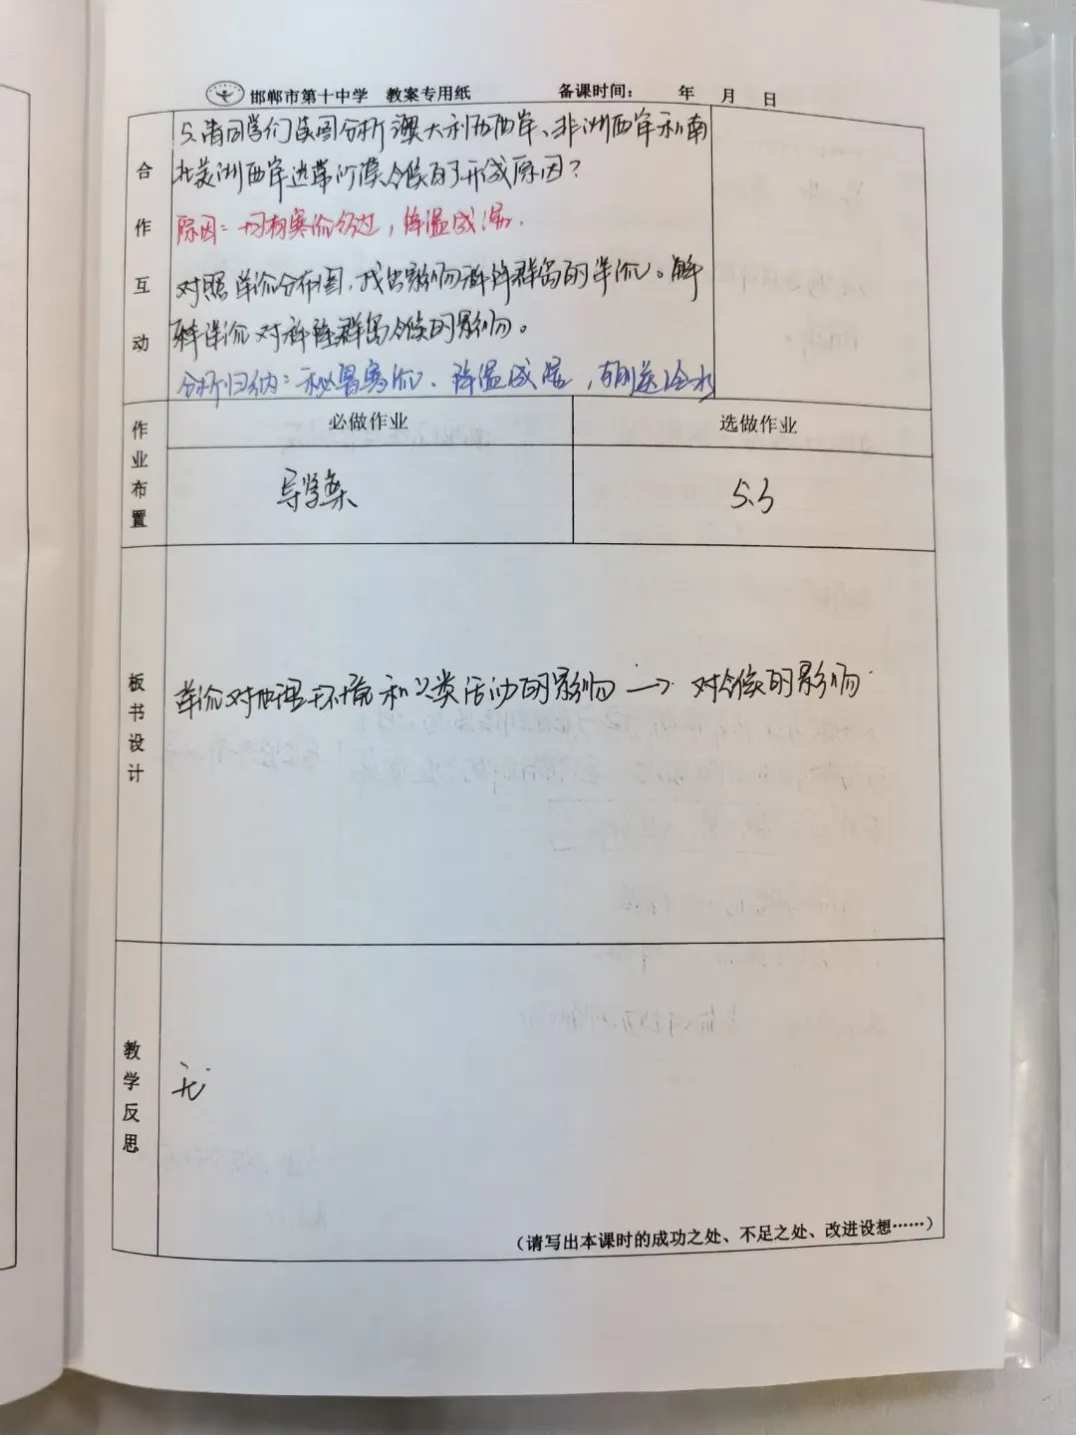 邯郸市第十中学 教案专用纸 备课时间： 年 月 日
合作互动
5.请同学们读图分析澳大利亚西岸、非洲西岸和南
北美洲西岸选荒漠气候的形成原因？
原因：均有寒流经过，降温减湿.
对照洋流分布图，找出影响群岛的洋流。解
释洋流对群岛气候的影响。
分析归纳：秘鲁寒流、降温减湿，
作业布置
必做作业 选做作业
导学案 5.3
板书设计
洋流对地理环境和人类活动的影响 → 对气候的影响
教学反思
无
（请写出本课时的成功之处、不足之处、改进设想……）